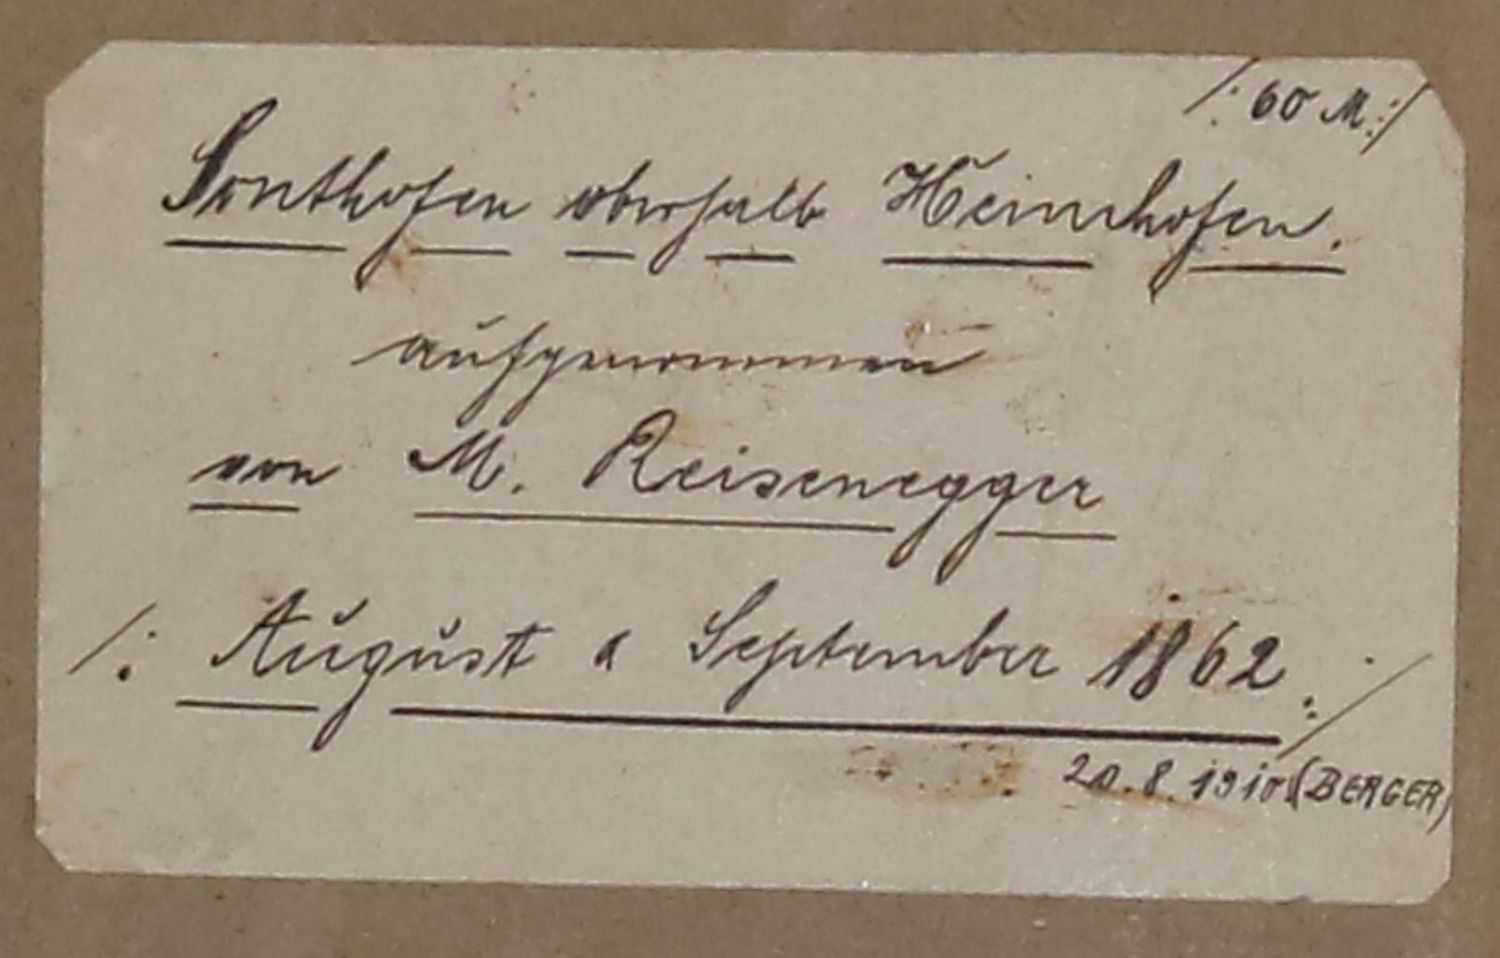 /: 60 M :/
Sonthofen oberhalb Heimhofen.
aufgenommen
von M. Reisenegger
/: August & September 1862 :/
20.8.1910 (BERGER)